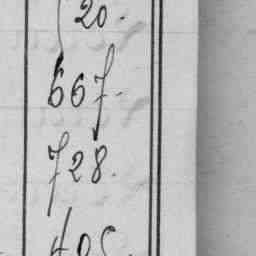 20.
667.
728.